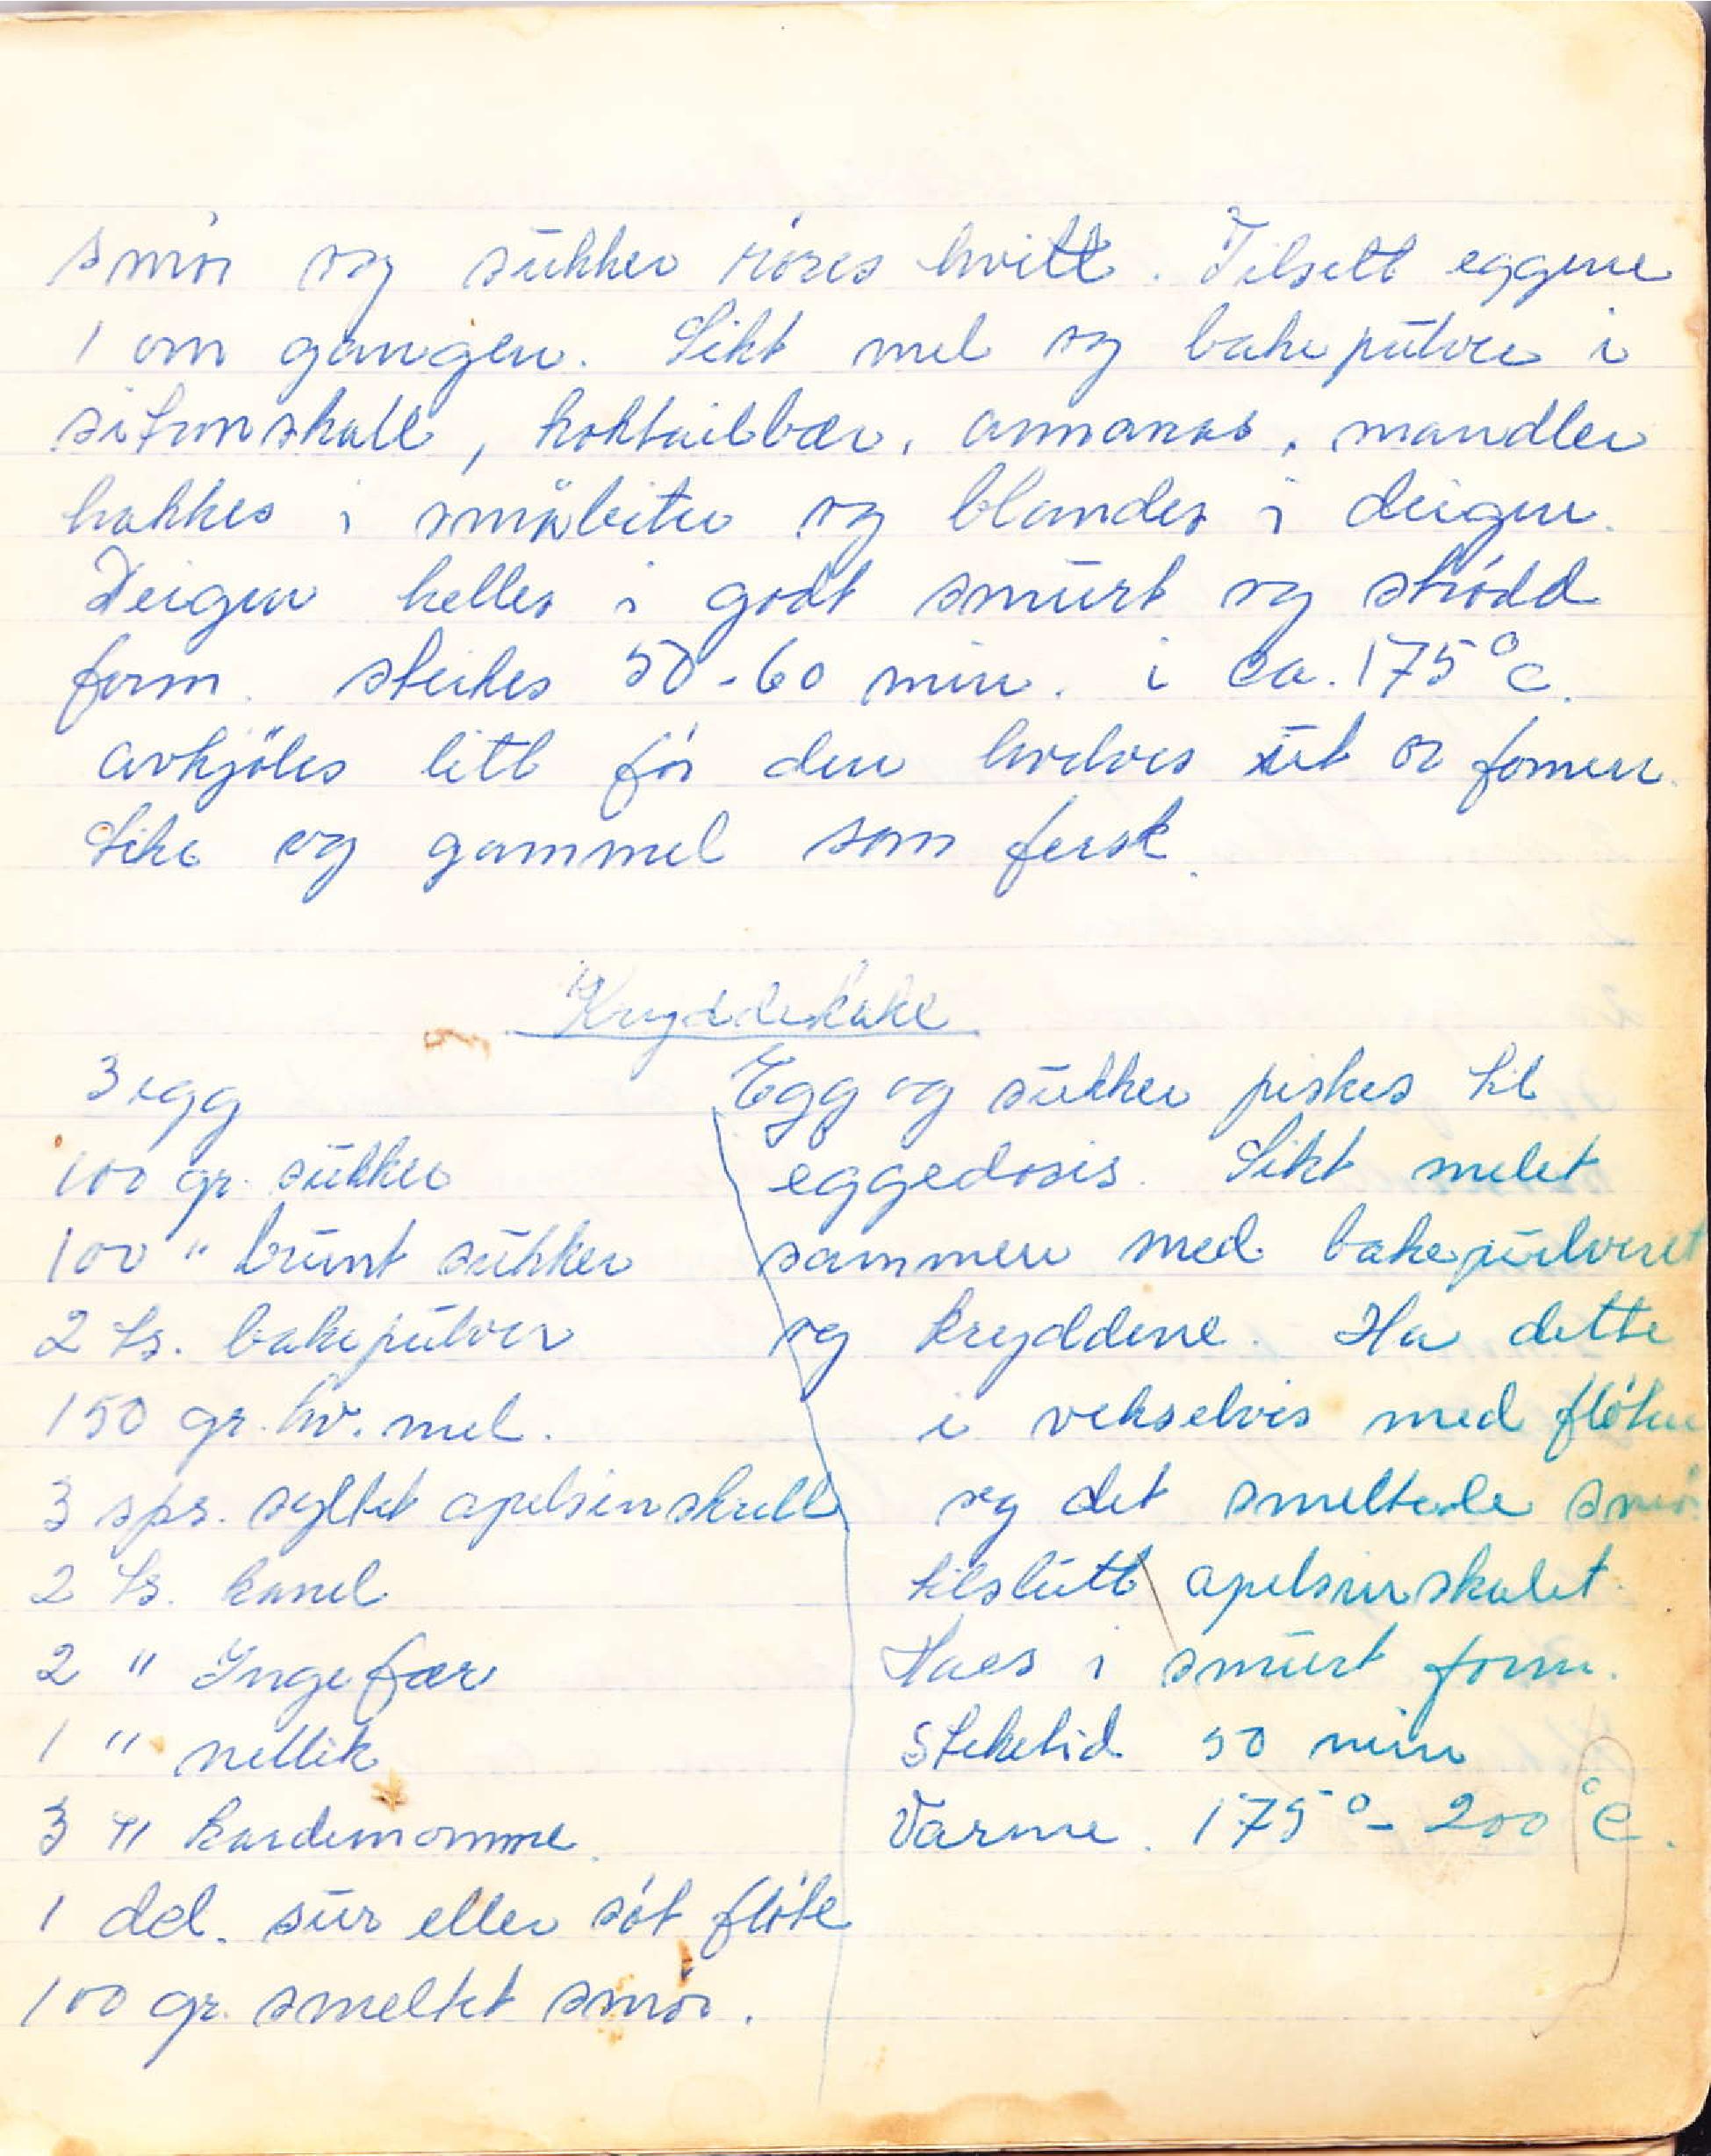 smør og sukker røres hvitt. Tilsett eggene
1 om gangen. Sikt mel og bakepulver i
sitronskall, koktailbær, annanas, mandler
hakkes i småbiter og blandes i deigen.
Deigen helles i godt smurt og strødd
form. steikes 50-60 min. i ca. 175°C.
avkjöles litt før den hvelves ut or formen.
Like og gammel som fersk.
Krydderkake
3 egg
100 gr. sukker
100 " brunt sukker
2 ts. bakepulver
150 gr. hv. mel.
3 sps. syltet apelsinskall
2 ts. kanel
2 " Ingefær
1 " nellik
3 " Kardemomme.
1 del. sur eller søt fløte
100 gr. smeltet smør.
Egg og sukker piskes til
eggedosis. Sikt melet
sammen med bakepulveret
og krydderne. Ha dette
i vekselvis med fløten
og det smeltede smør.
tilslutt apelsinskalet.
Haes i smurt form.
Steketid 50 min
Varme. 175° - 200°C.